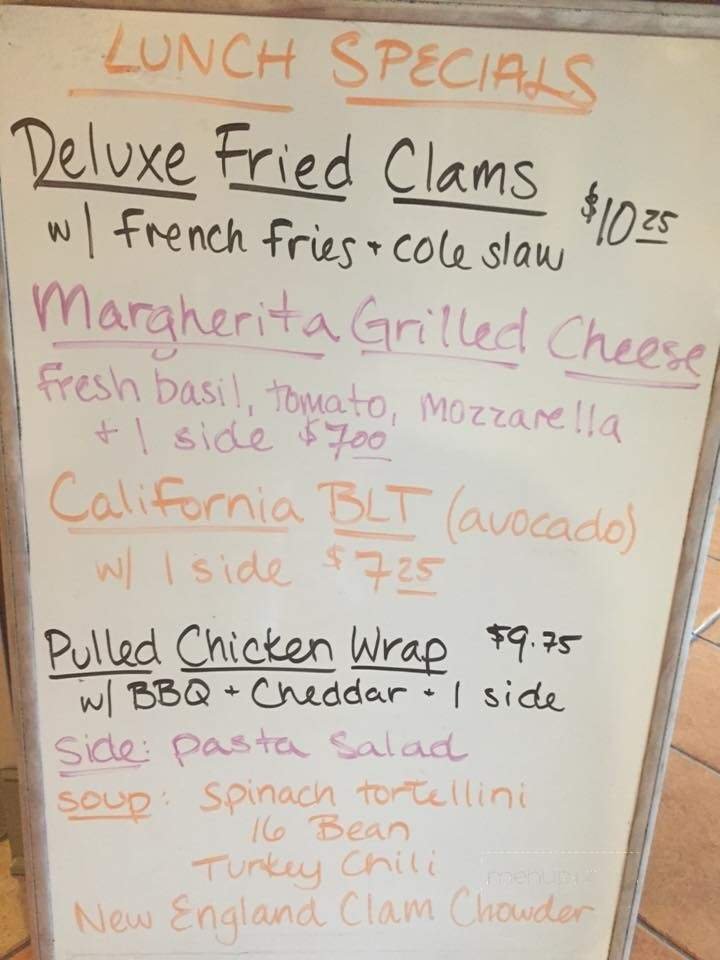 LUNCH SPECIALS
Deluxe Fried Clams $10 25
w/ French fries + cole slaw
Margherita Grilled Cheese
fresh basil, tomato, mozzarella
+ 1 side $7 00
California BLT (avocado)
w/ 1 side $7 25
Pulled Chicken Wrap $9.75
w/ BBQ + Cheddar + 1 side
Side: pasta salad
soup: spinach tortellini
16 Bean
Turkey Chili
New England Clam Chowder